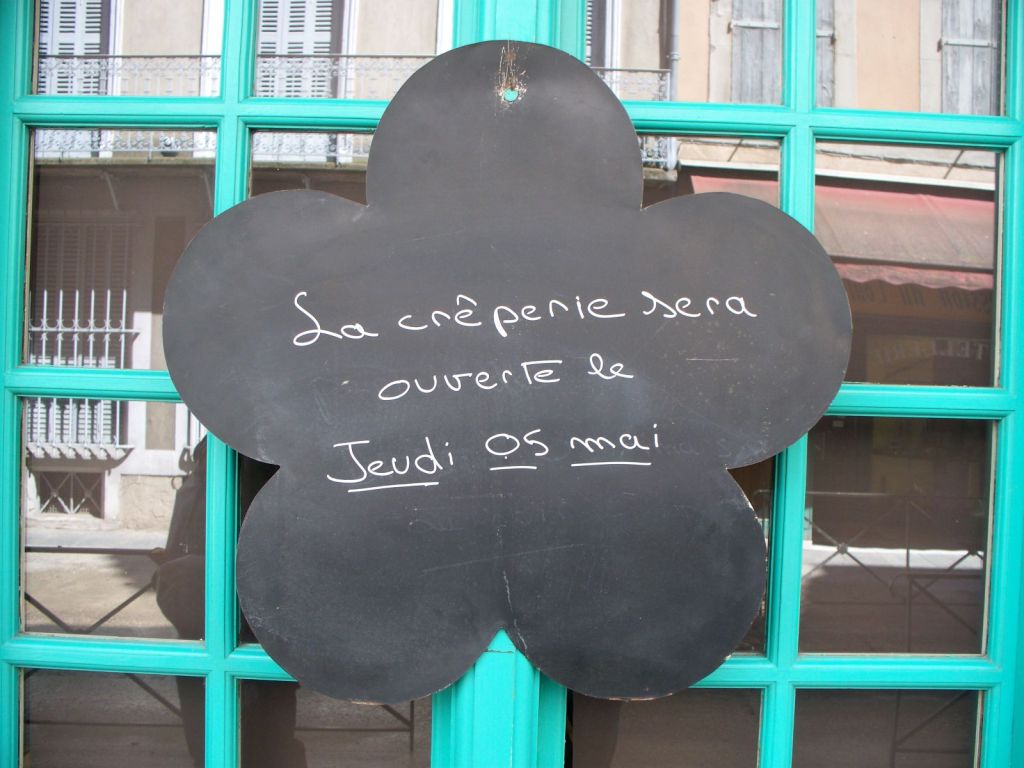 La crêperie sera
ouverte le
Jeudi 05 mai